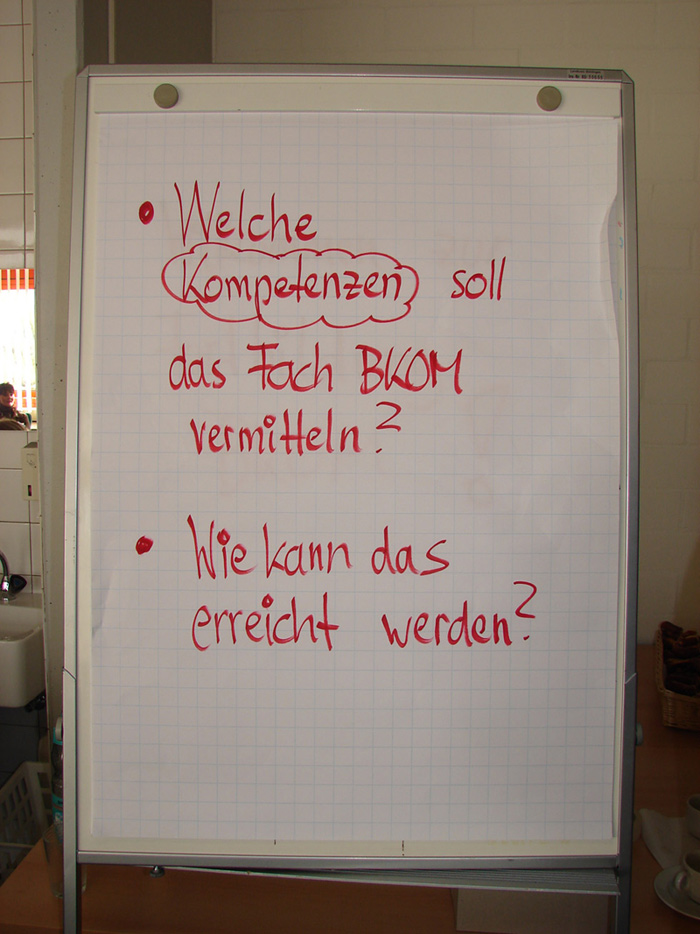 • Welche
Kompetenzen soll
das Fach BKOM
vermitteln?
• Wie kann das
erreicht werden?